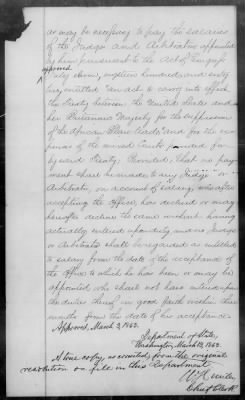 as may be necessary to pay the salaries
of the Judges and Arbitrators appointed
by him pursuant to the Act of Congress
approved
July eleven, eighteen hundred and sixty
two, entitled "An act to carry into effect
the Treaty between the United States and
her Britannic Majesty for the suppression
of the African Slave Trade" and for the ex
penses of the mixed Courts provided for
by said Treaty; Provided, that no pay
ment shall be made to any Judge or
Arbitrator, on account of salary, who after
accepting the office, has declined or may
hereafter decline the same without having
actually entered upon duty, and no Judge
or Arbitrator shall be regarded as entitled
to salary from the date of the acceptance of
the office to which he has been or may be
appointed who shall not have entered upon
the duties thereof in good faith within three
months from the date of his acceptance.
Approved, March 3, 1863.
Department of State,
Washington, March 1863.
A true copy, as executed, from the original
resolution on file in this Department.
W. Hunter
Chief Clerk